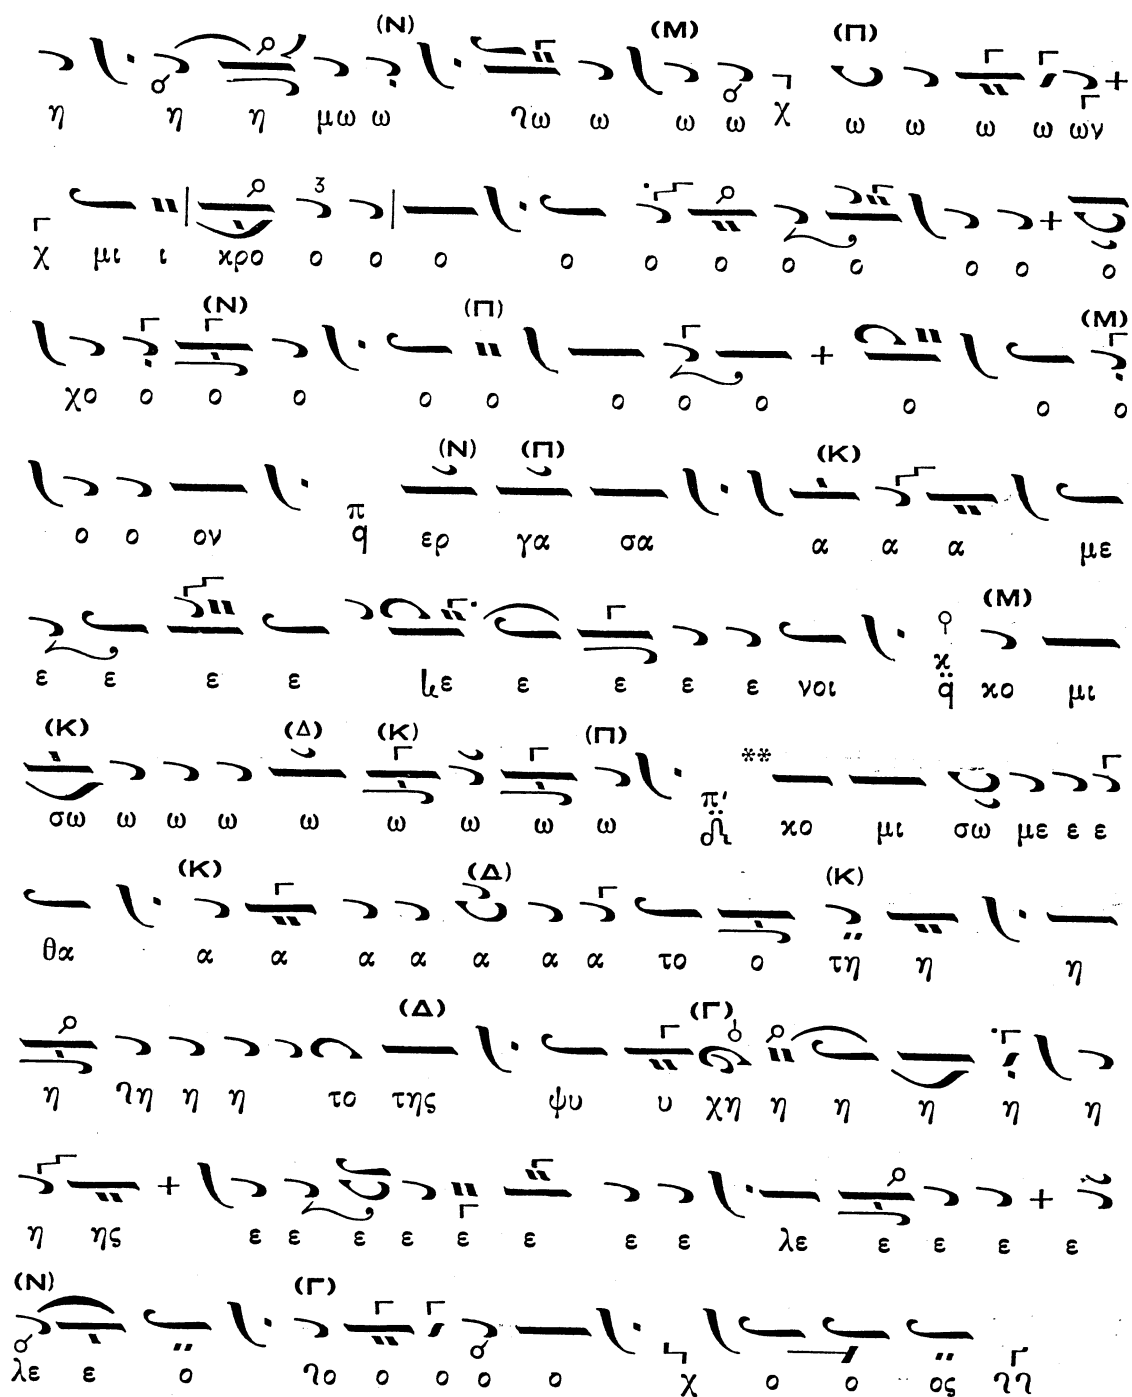 (Ν) (Μ) (Π)
η η η μω ω ω ω ω ω χ ω ω ω ω ων
3
χ μι ι κρο ο ο ο ο ο ο ο ο ο ο ο
(Ν) (Π) (Μ)
χο ο ο ο ο ο ο ο ο ο ο ο
(Ν) (Π) (Κ)
ο ο ον π q ερ γα σα α α α με
(Μ)
ε ε ε ε ε ε ε ε ε νοι κ q κο μι
(Κ) (Δ) (Κ) (Π)
σω ω ω ω ω ω ω ω ω π' ** κο μι σω με ε ε
(Κ) (Δ) (Κ)
θα α α α α α α α το ο τη η η
(Δ) (Γ)
η η η η το της ψυ υ χη η η η η η
η ης ε ε ε ε ε ε ε ε λε ε ε ε ε
(Ν) (Γ)
λε ε ο ο ο ο ο ο χ ο ο ος